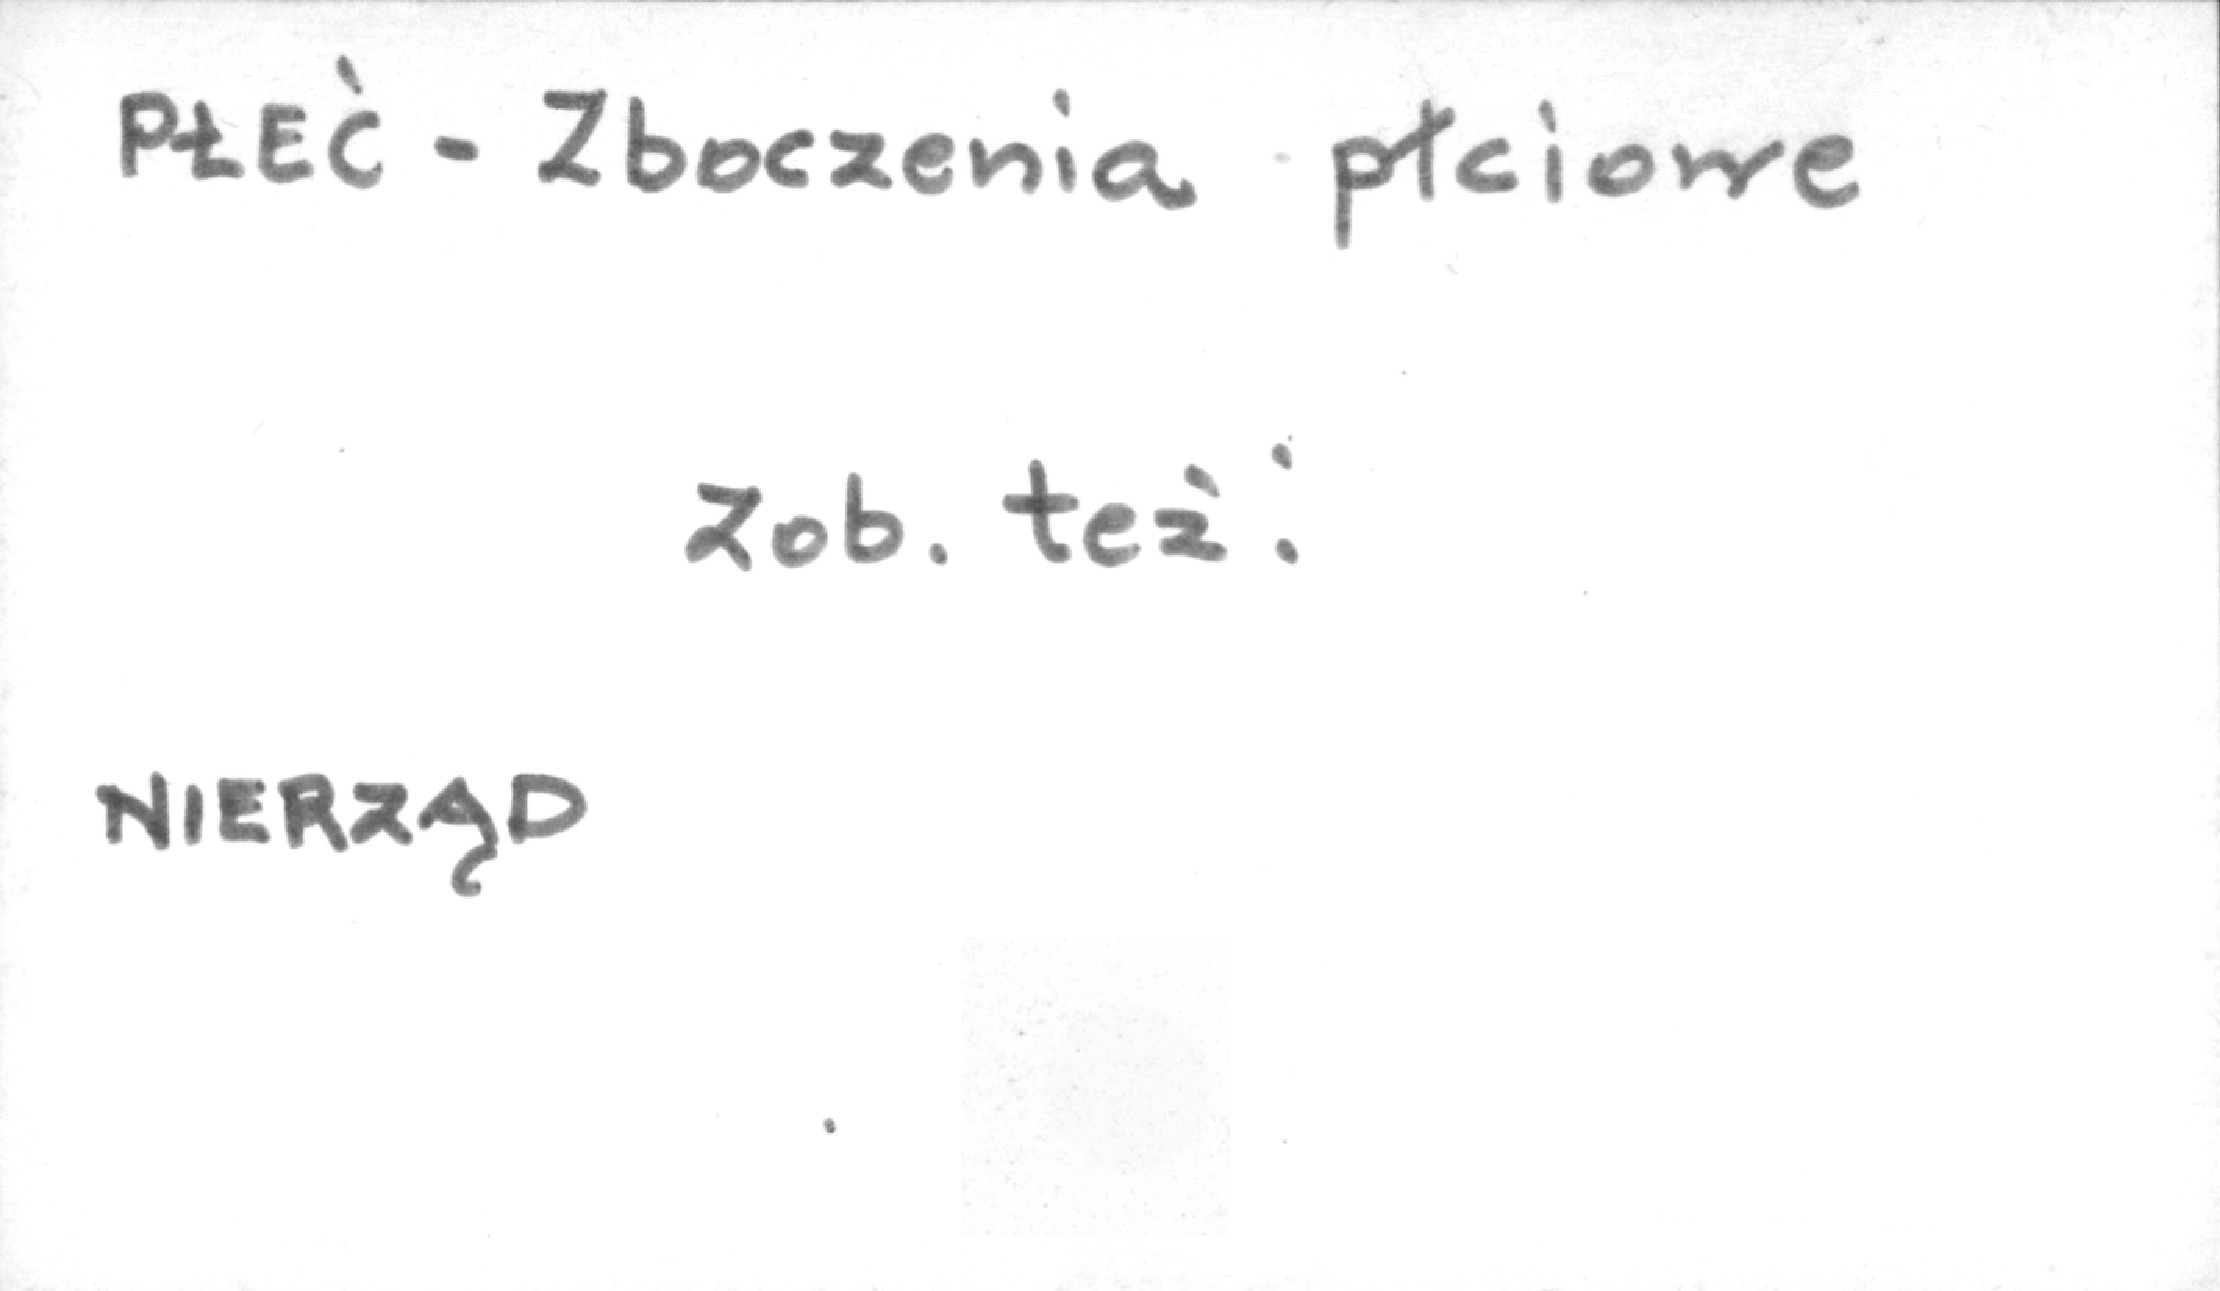 PŁEĆ - Zboczenia płciowe
Zob. też:
NIERZĄD